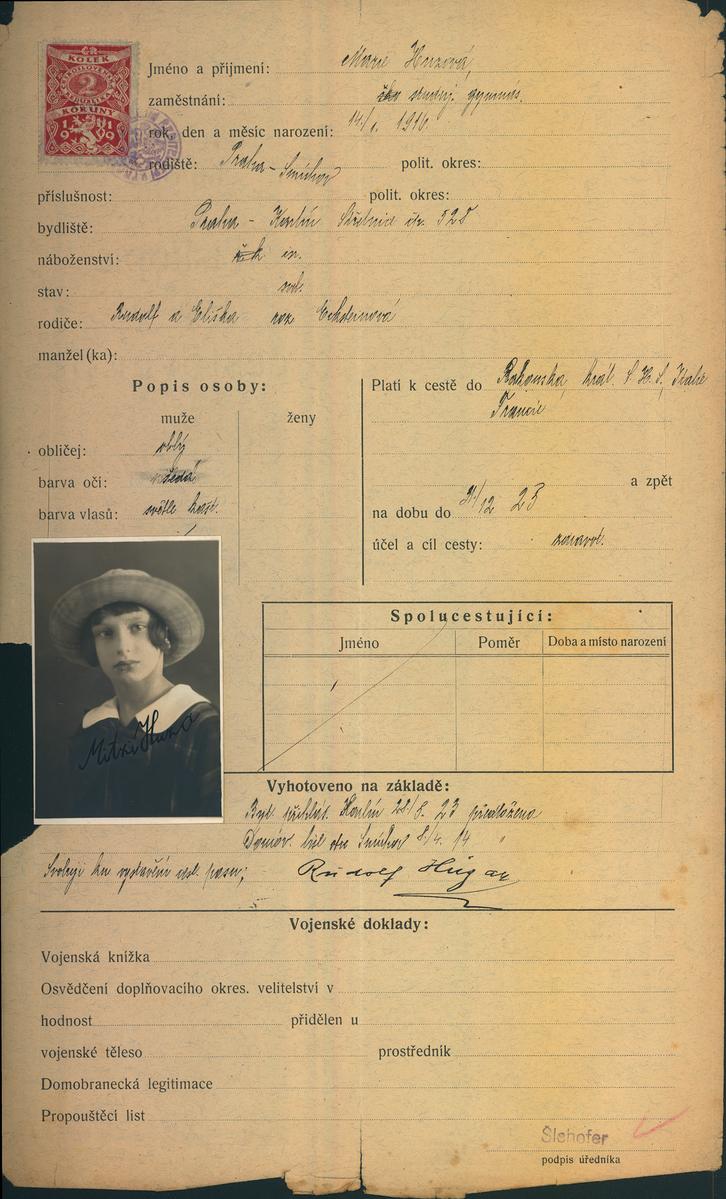 ČR
KOLEK
2
KORUNY
1919
Jméno a příjmení: Marie Huzová
zaměstnání: studuj. gymnas.
rok, den a měsíc narození: 14./1. 1910
rodiště: Praha - Smíchov polit. okres:
příslušnost: polit. okres:
bydliště: Praha - Karlín Střelnice čp. 328
náboženství: řk
stav: sv.
rodiče: Rudolf a Eliška roz.
manžel (ka):
Popis osoby:
muže ženy
obličej: oblý
barva očí: šedá
barva vlasů: světle kašt.
Platí k cestě do Rakouska, král. S. H. S., Italie
Francie
a zpět
na dobu do 31/12 23
účel a cíl cesty: zdravot.
Mitzi Huza
Spolucestující:
Jméno Poměr Doba a místo narození
Vyhotoveno na základě:
Byt. přihláš. Karlín 22/8. 23 předložena
Domov. list obce Smíchov 8/4. 14 "
Svoluji ku vystavení cest. pasu; Rudolf
Vojenské doklady:
Vojenská knížka
Osvědčení doplňovacího okres. velitelství v
hodnost přidělen u
vojenské těleso prostředník
Domobranecká legitimace
Propouštěcí list
Slehofer
podpis úředníka